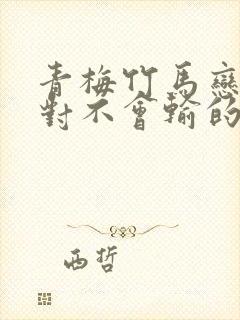 青梅竹馬戀
對不會輸的
西哲